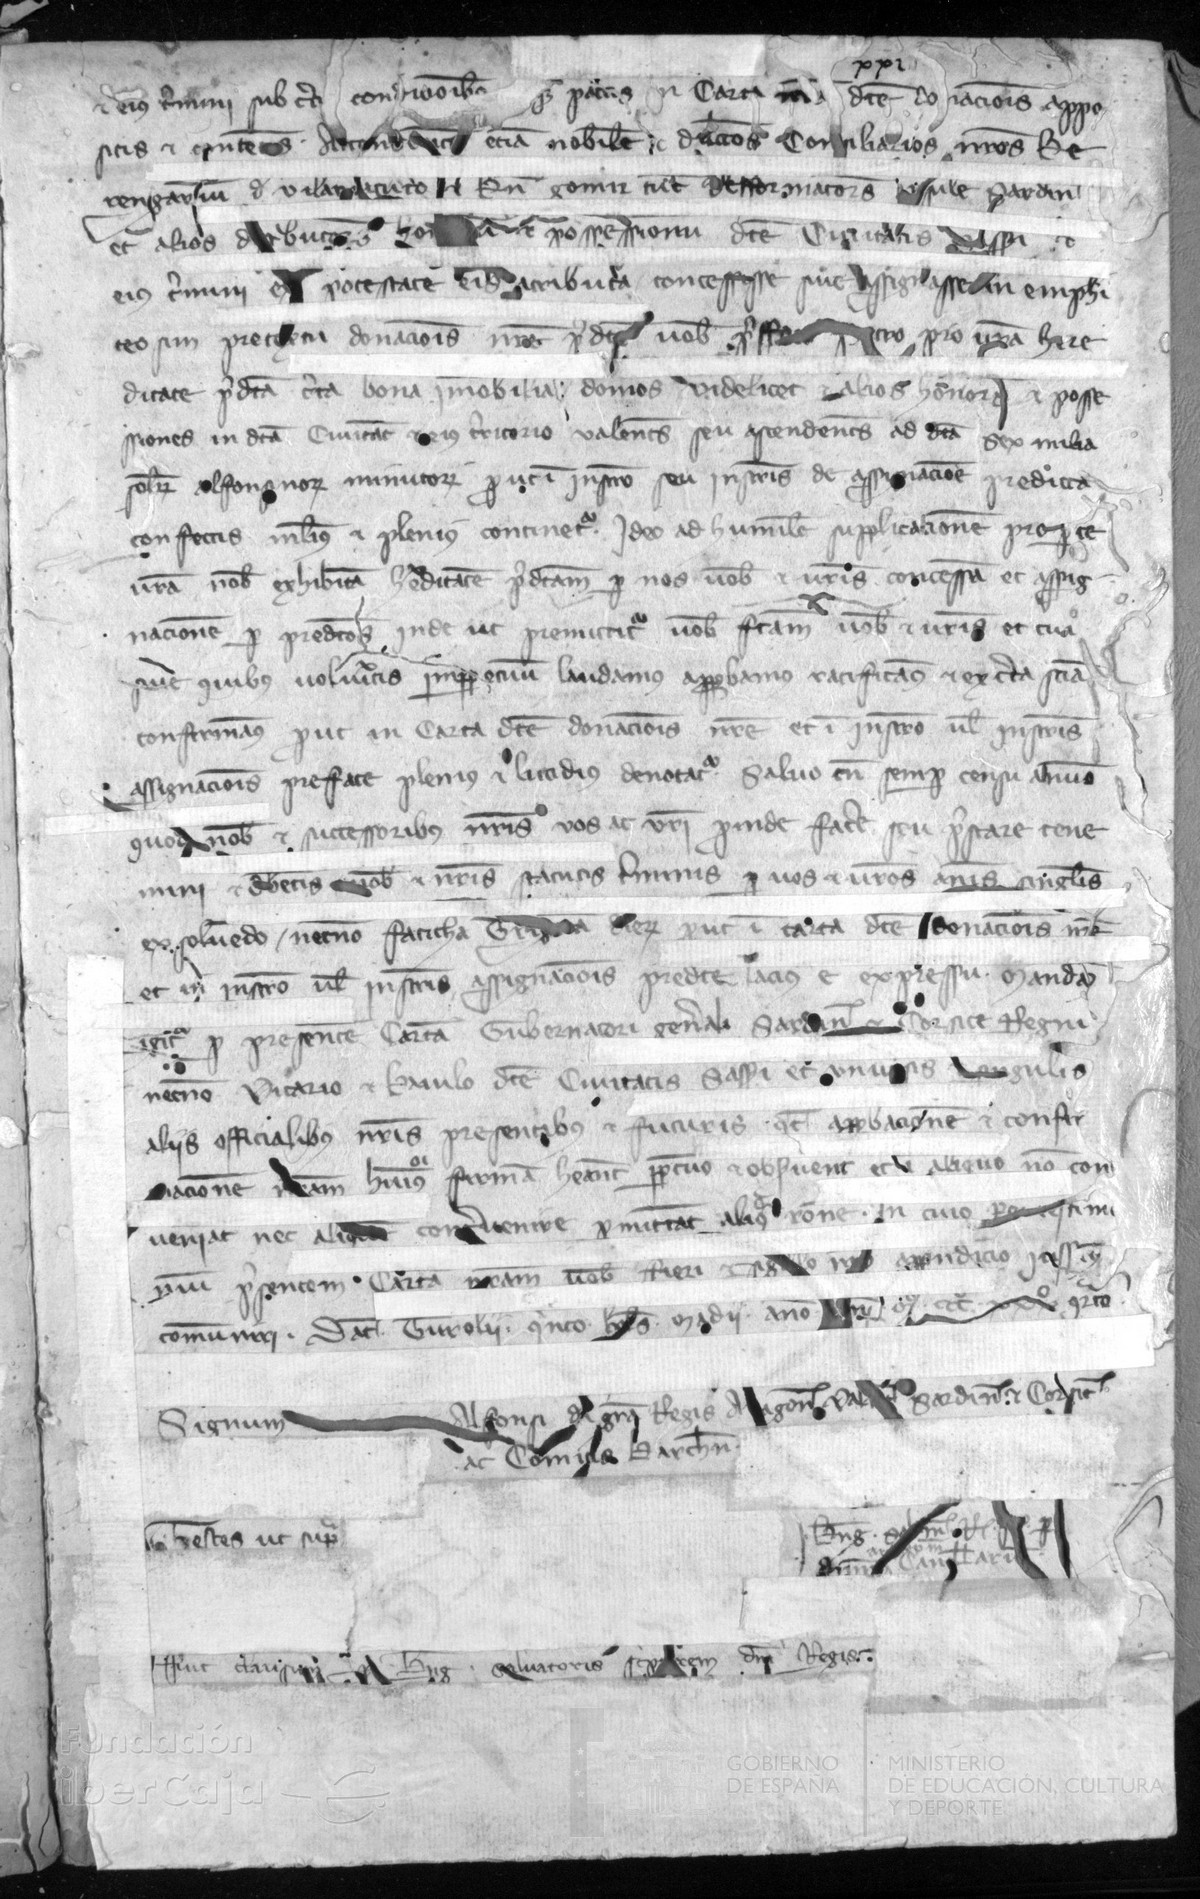 xxi
et eius termini sub certis condicionibus et pactis in Carta dicte donacionis appo
sitis et contentis. Attendentes eciam nobilem et dilectos Consiliarios nostros Be
rengarium de vilaracuto et Bn gomir tunc Refformatores Insule Sardin
et alios distributores et possessionum dicte Civitatis Sasseri et
eius termini ex potestate eis atributa concessisse sive assignasse in emphi
teosim pretextu donacionis nostre predicte vobis pro vestra here
ditate predicta certa bona inmobilia: domos videlicet et alios honores et posse
ssiones in dicta Civitate et eius territorio valentes seu ascendentes ad dicta sex milia
solidorum alfonsinorum minutorum prout in instrumento seu instrumentis de assignacione predicta
confectis melius et plenius continetur. Ideo ad humilem supplicacionem pro parte
vestra nobis exhibitam hereditatem predictam per nos vobis et vestris concessam et assig
nacionem per predictos inde ut premittitur vobis factam vobis et vestris et cui
quibus volueritis imperpetuum laudamus approbamus ratificamus et ex certa sciencia
confirmamus prout in Carta dicte donacionis nostre et in instrumento vel instrumentis
assignacionis prefate plenius et lucidius denotatur. Salvo tamen semper censu annuo
quod nobis et successoribus nostris vos ac vestri proinde facere seu prestare tene
mini et debetis nobis et nostris statutis terminis per vos et vestros annis singulis
exsolvendo, necnon faticha Triginta dierum prout in carta dicte donacionis nostre
et in instrumento vel instrumentis assignacionis predicte lacius est expressum. Mandantes
igitur per presentem Cartam Gubernatori generali Sardinie et Corsice Regni
necnon Vicario et baiulo dicte Civitatis Sasseri et universis singulis
aliis officialibus nostris presentibus et futuris quod approbacionem et confir
macionem nostram huiusmodi firmam habeant perpetuo et observent et in aliquo non con
veniat nec aliquem contravenire permittat aliqua racione. In cuius rei testimo
nium presentem Cartam nostram vobis fieri et sigillo nostro appendicio iussimus
comuniri. Dat Turolii quinto kalendas Madii anno domini Mo CCC xxxo quarto.
Signum Alfonsi dei gracia Regis Aragonum Valencie Sardinie et Corsice
ac Comitis Barchinone
Testes ut supra
Bng
Fuit clausum per Bng salvatoris scriptorem domini Regis.
Fundación
iberCaja
GOBIERNO
DE ESPAÑA
MINISTERIO
DE EDUCACIÓN, CULTURA
Y DEPORTE